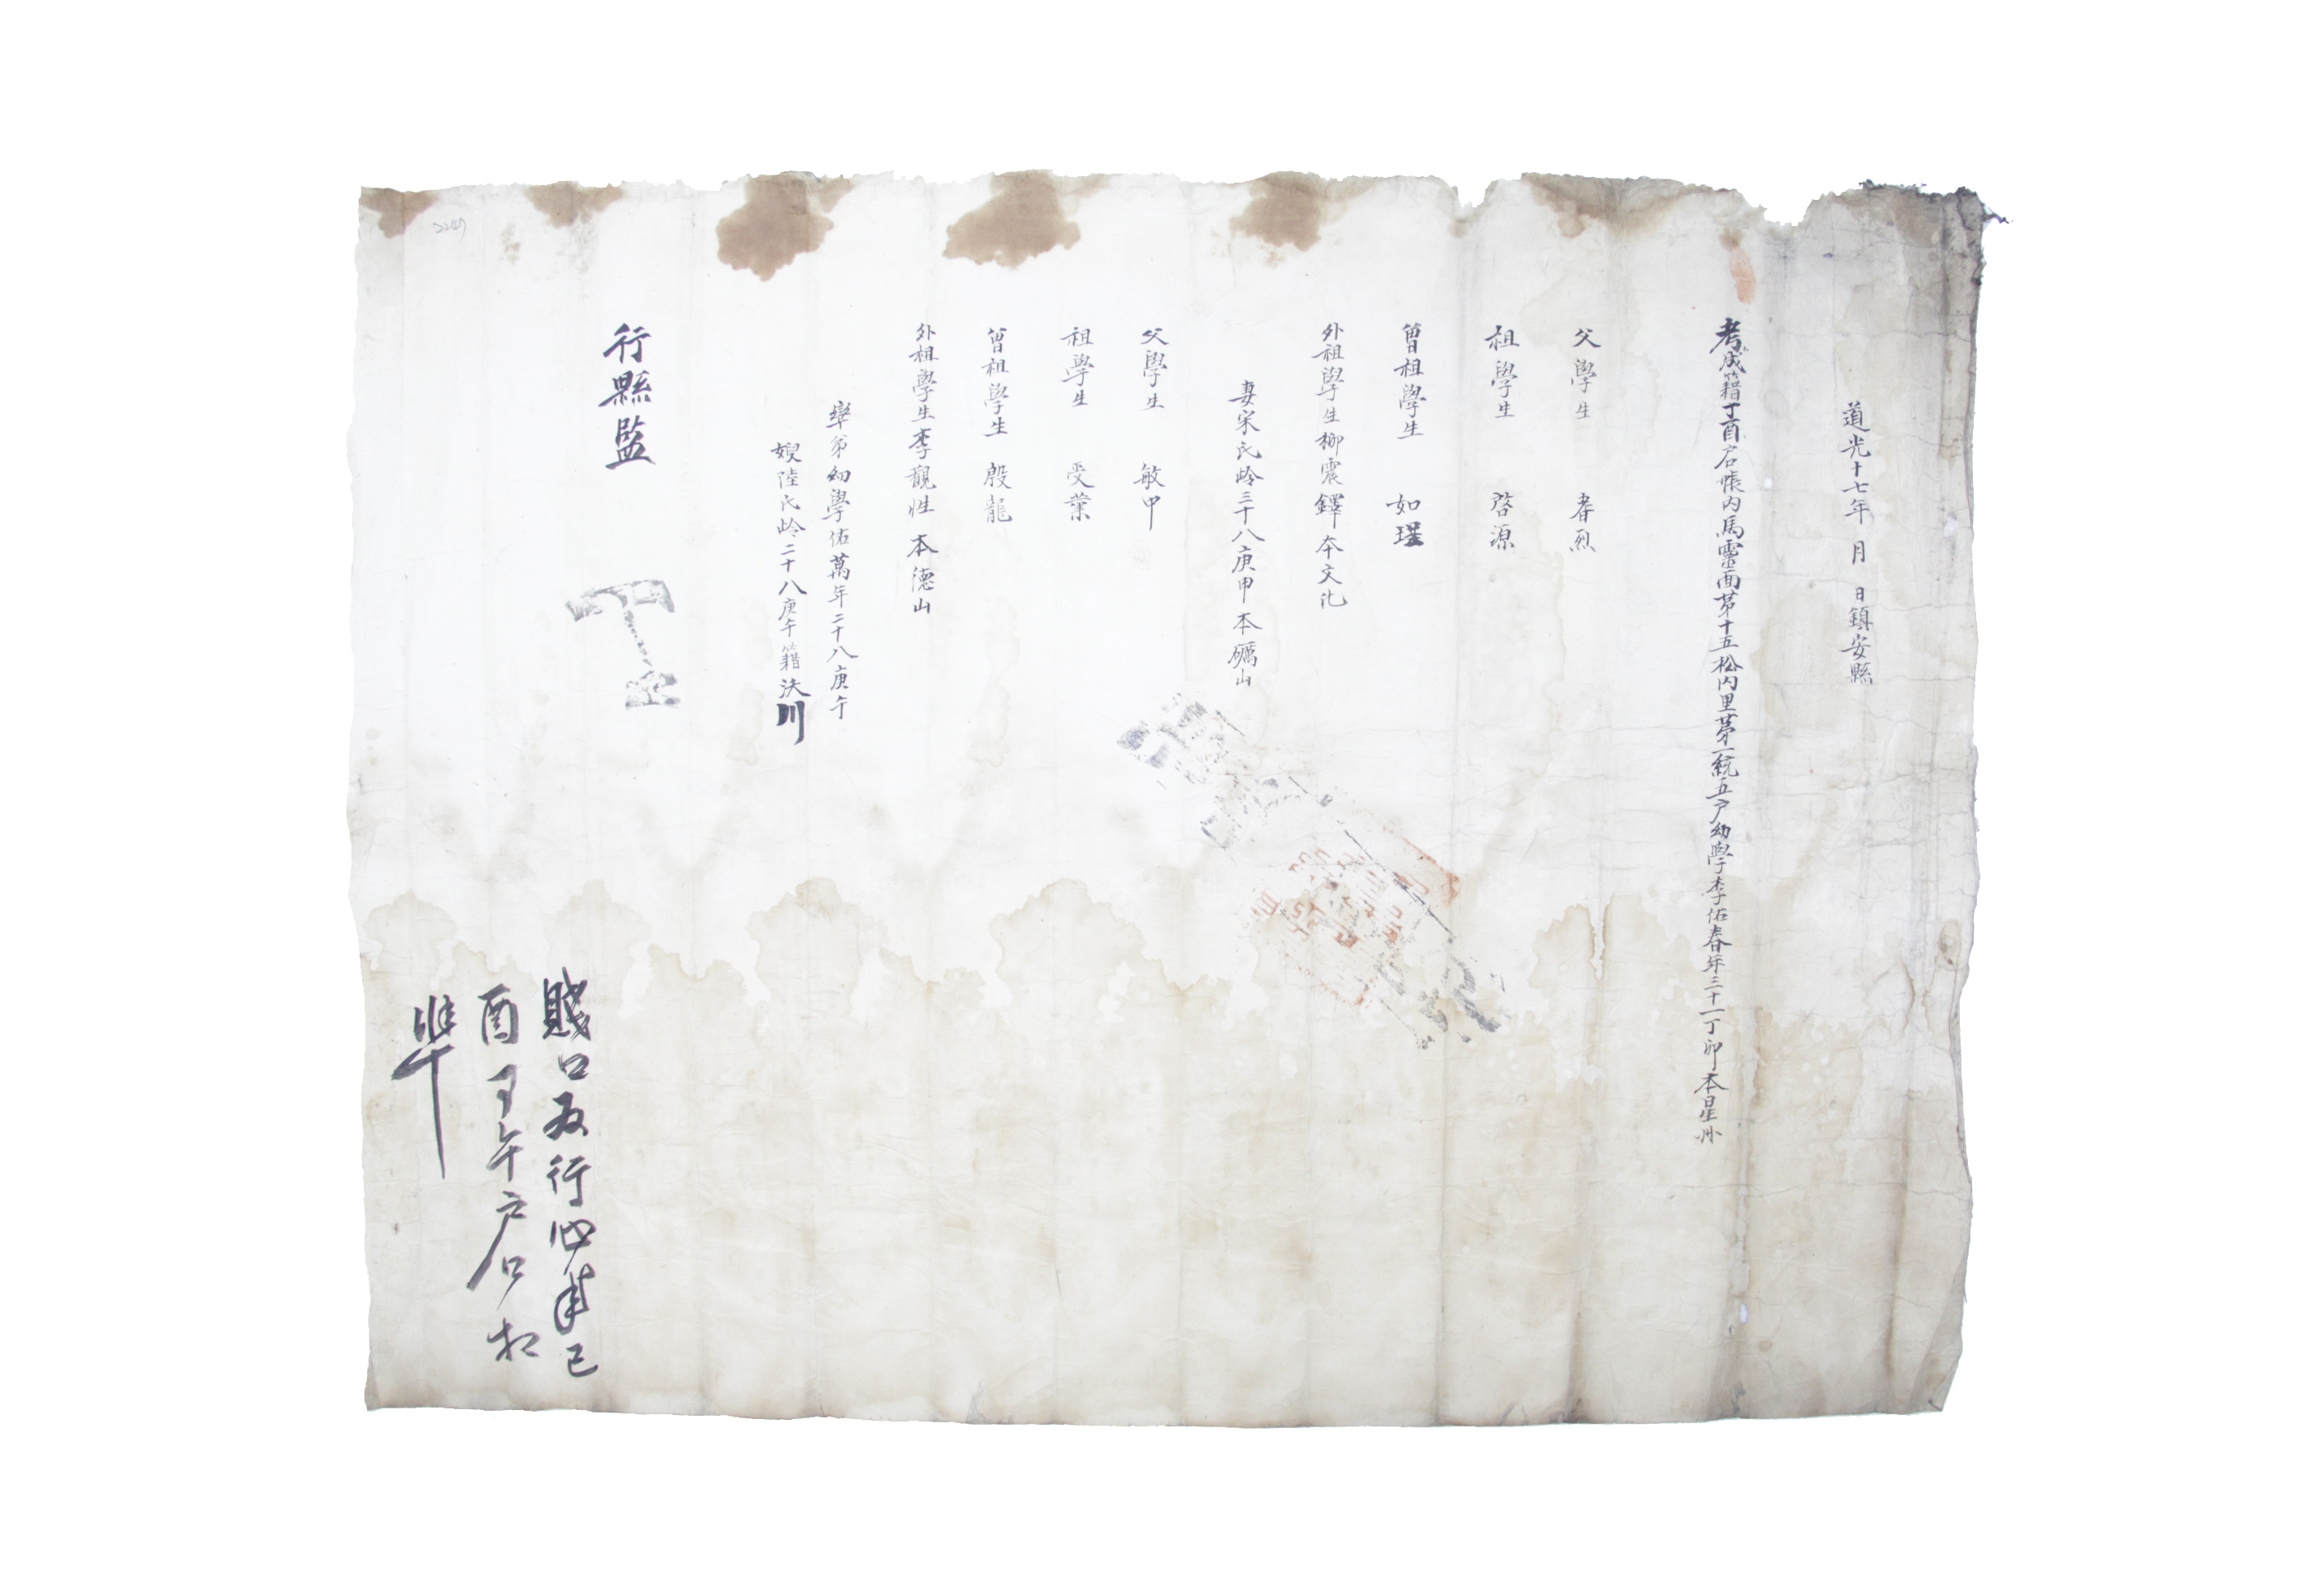 道光十七年 月 日鎮安縣
考成籍丁酉户帳內馬靈面第十五松內里第一統五户幼學李佑春年三十一丁卯本星州
父學生 春烈
祖學生 啓源
曾祖學生 如珵
外祖學生柳震鐸本文化
妻宋氏岭三十八庚申本礪山
父學生 敏中
祖學生 受業
曾祖學生 殷龍
外祖學生李觀性本德山
率弟幼學佑萬年二十八庚午
嫂陸氏岭二十八庚午籍沃川
行縣監
賤口 行 已
酉 午户口相
準